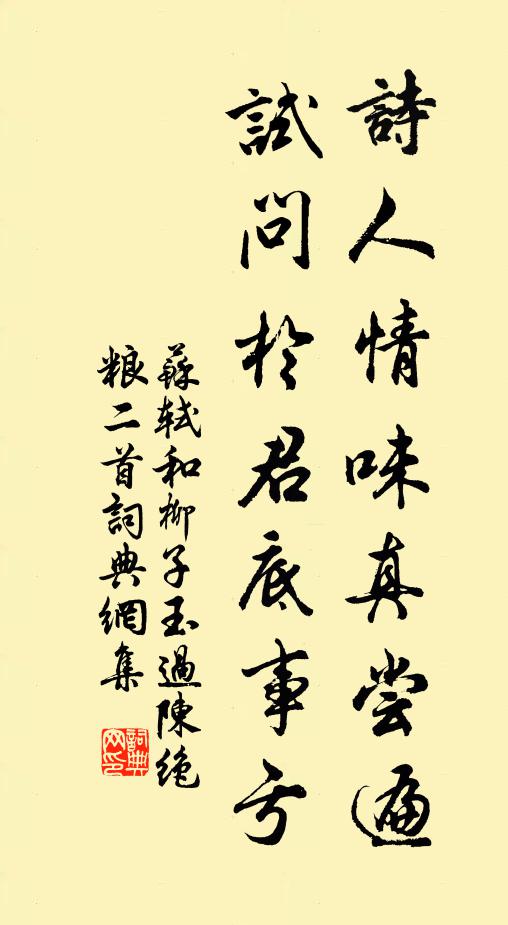 詩人情味真尝遍
試問於君底事亏
蘇轼和柳子玉過陳绝
粮二首詞典網集
詞典
网印